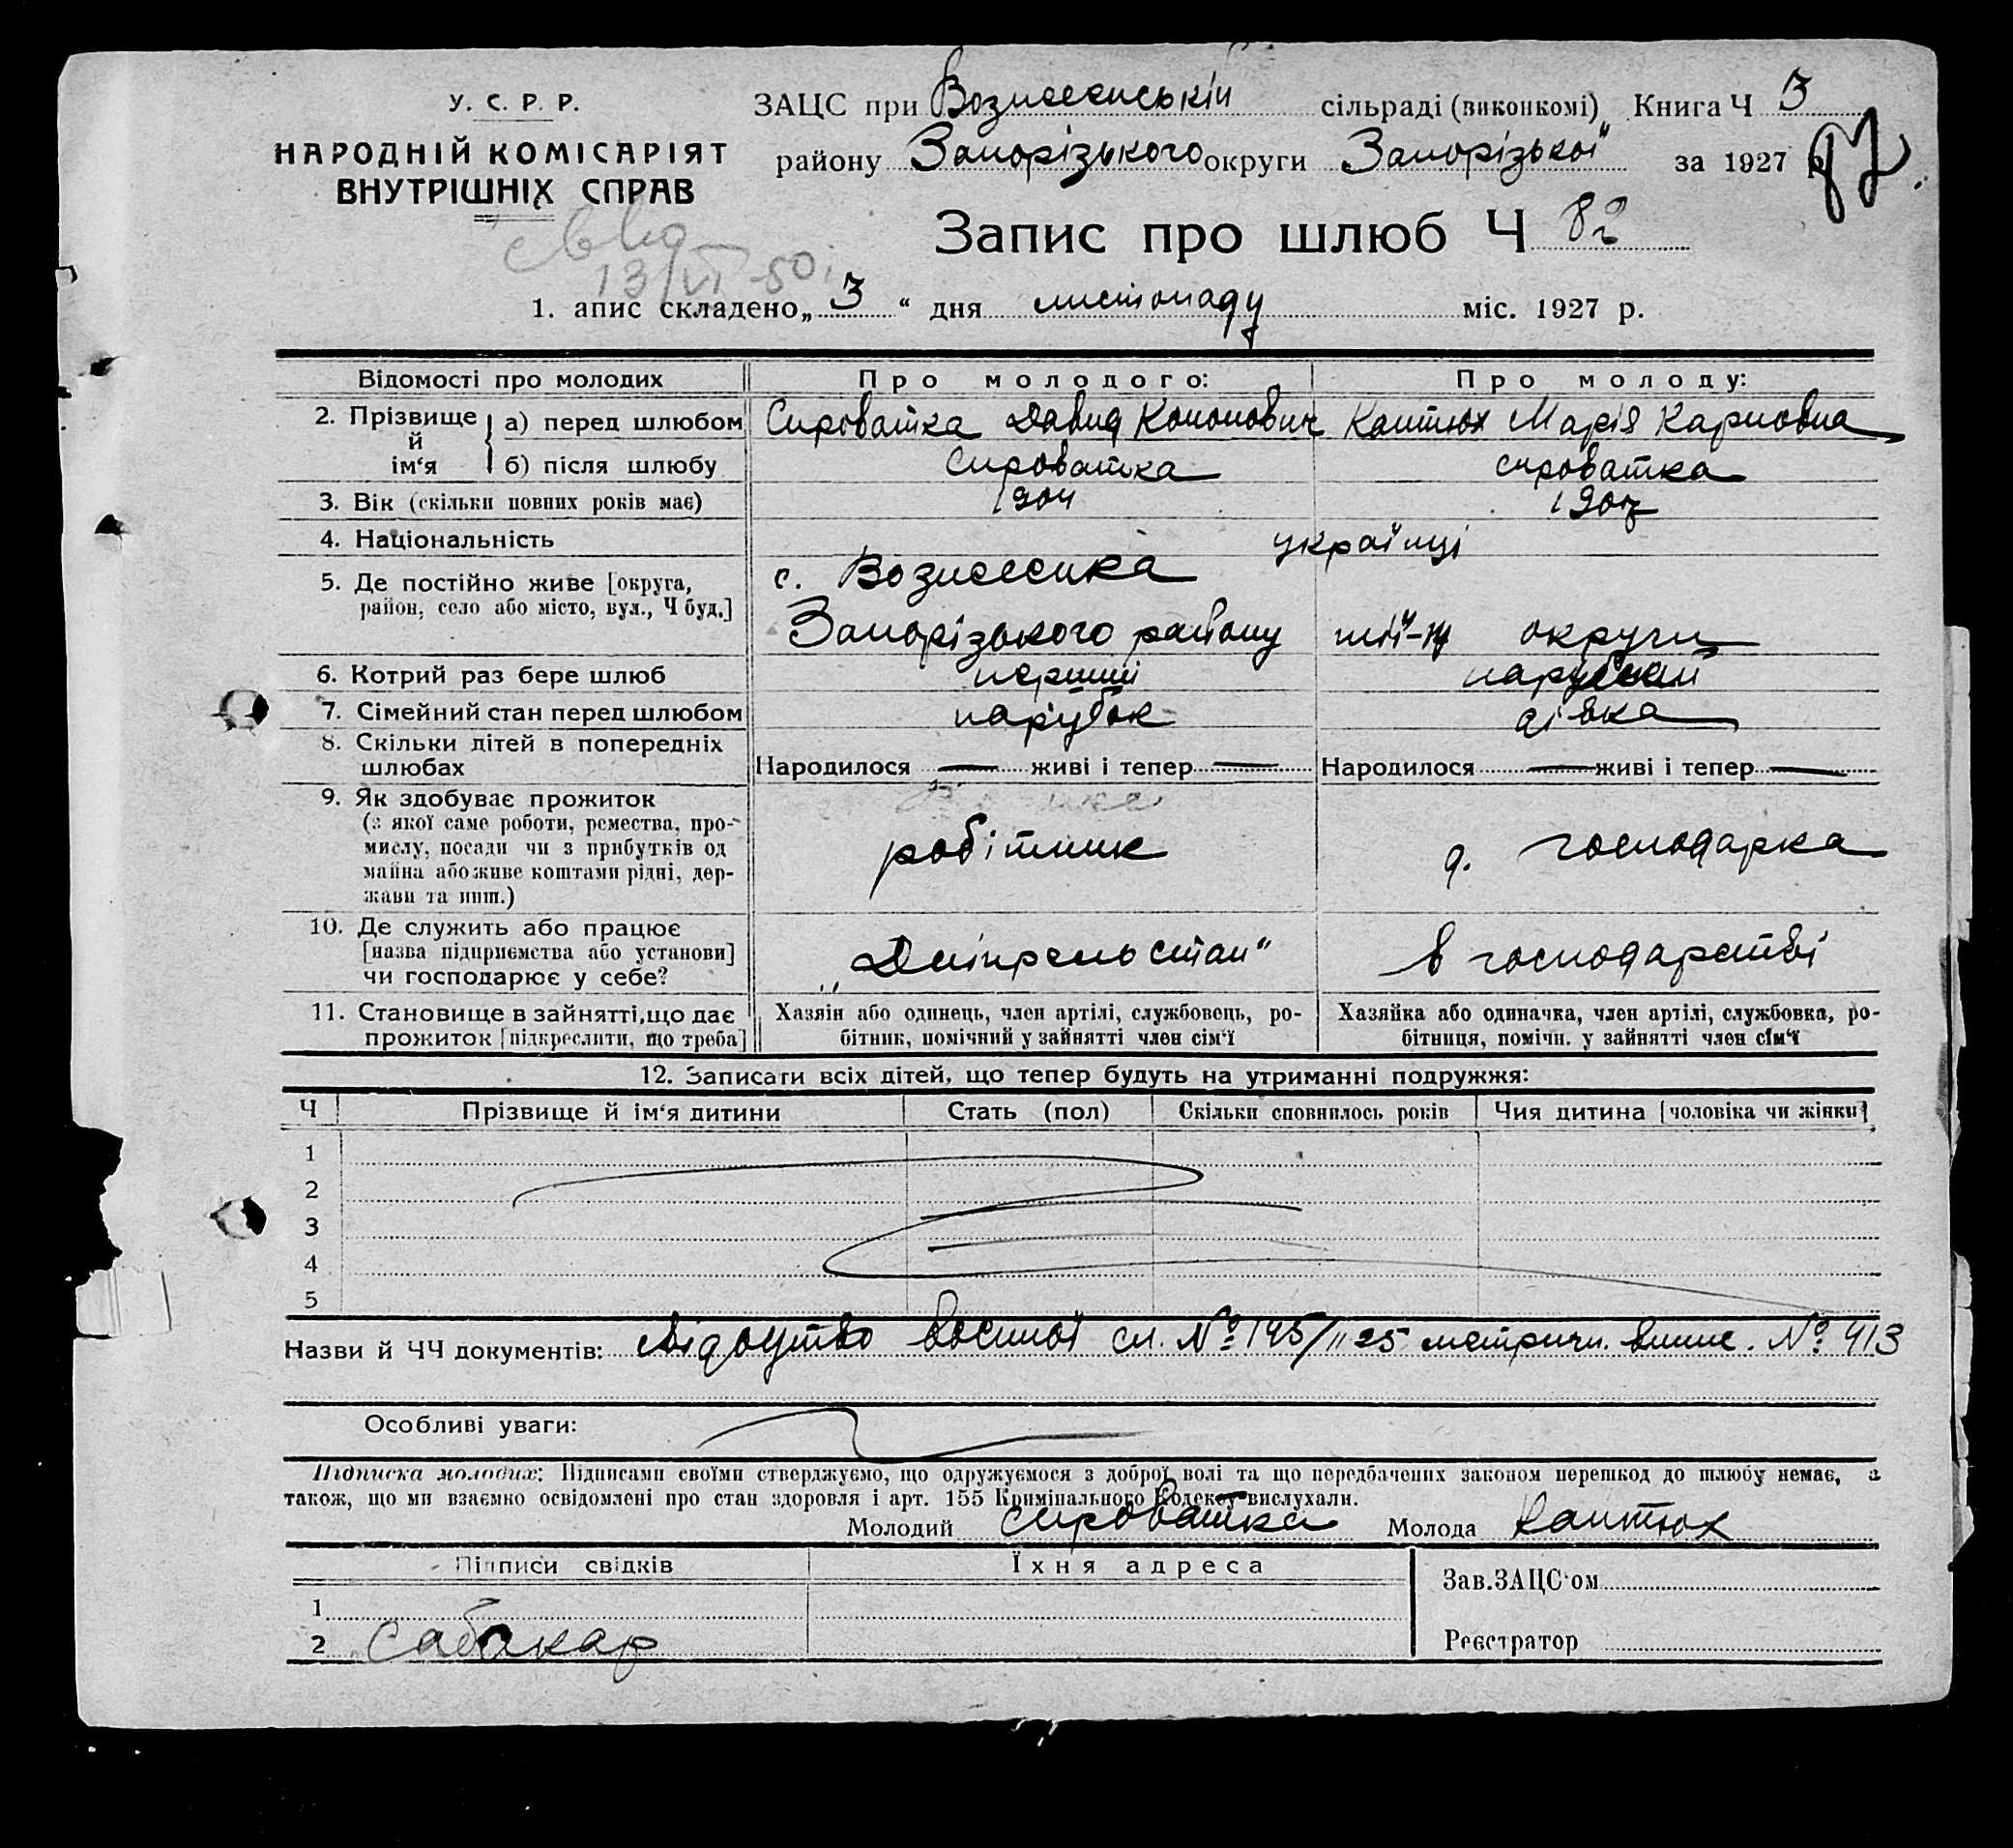 У. С. Р. Р.
НАРОДНІЙ КОМІСАРІЯТ
ВНУТРІШНІХ СПРАВ
ЗАЦС при Вознесенській сільраді (виконкомі) Книга Ч 3
району Запорізького округи Запорізької за 1927 р.
97.
Запис про шлюб Ч 82
13/VI-50
1. апис складено „3“ дня листопаду міс. 1927 р.
Відомості про молодих Про молодого: Про молоду:
2. Прізвище й ім'я а) перед шлюбом Сироватка Давид Кононович Каптюх Марія Карповна
б) після шлюбу Сироватка сироватка
3. Вік (скільки повних років має) 1904 1907
4. Національність українці
5. Де постійно живе [округа, район, село або місто, вул., Ч буд.] с. Вознесенка
Запорізького району округи
6. Котрий раз бере шлюб перший
7. Сімейний стан перед шлюбом парубок дівка
8. Скільки дітей в попередніх шлюбах Народилося — живі і тепер — Народилося — живі і тепер —
9. Як здобуває прожиток
(з якої саме роботи, ремества, про-
мислу, посади чи з прибутків од
майна або живе коштами рідні, дер-
жави та инш.)
робітник д. господарка
10. Де служить або працює
[назва підприємства або установи]
чи господарює у себе?
„Дніпрельстан“ в господарстві
11. Становище в зайнятті, що дає
прожиток [підкреслити, що треба]
Хазяін або одинець, член артілі, службовець, ро-
бітник, помічний у зайнятті член сім'ї
Хазяйка або одиначка, член артілі, службовка, ро-
бітниця, помічн. у зайнятті член сім'ї
12. Записати всіх дітей, що тепер будуть на утриманні подружжя:
Ч Прізвище й ім'я дитини Стать (пол) Скільки сповнилось років Чия дитина [чоловіка чи жінки]
1
2
3
4
5
Назви й ЧЧ документів: військової сл. № 195/1125 метричн. випис. № 413
Особливі уваги:
Підписка молодих: Підписами своїми стверджуємо, що одружуємося з доброї волі та що передбачених законом перешкод до шлюбу немає, а
також, що ми взаємно освідомлені про стан здоровля і арт. 155 Кримінального Кодексу вислухали.
Молодий сироватка Молода Каптюх
Підписи свідків Їхня адреса
Зав.ЗАЦС'ом
1
2 Сабакар
Реєстратор